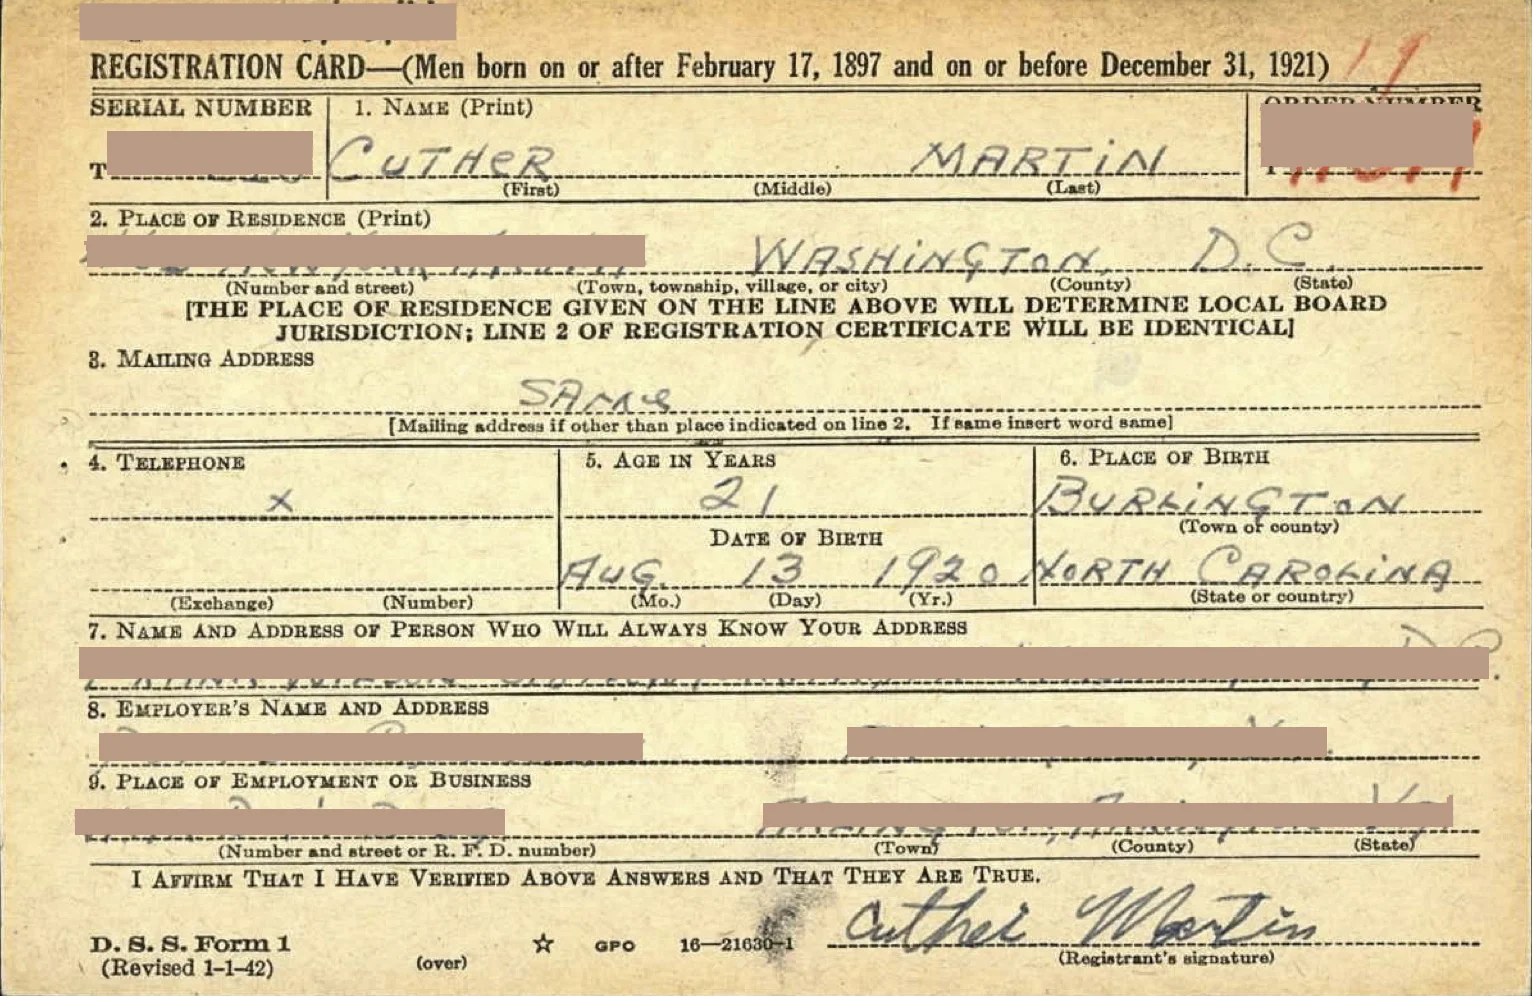 REGISTRATION CARD—(Men born on or after February 17, 1897 and on or before December 31, 1921) 19
SERIAL NUMBER
1. NAME (Print)
ORDER NUMBER
T
CUTHER MARTIN
(First) (Middle) (Last)
2. PLACE OF RESIDENCE (Print)
WASHINGTON, D.C.
(Number and street) (Town, township, village, or city) (County) (State)
[THE PLACE OF RESIDENCE GIVEN ON THE LINE ABOVE WILL DETERMINE LOCAL BOARD
JURISDICTION; LINE 2 OF REGISTRATION CERTIFICATE WILL BE IDENTICAL]
3. MAILING ADDRESS
SAme
[Mailing address if other than place indicated on line 2. If same insert word same]
4. TELEPHONE
5. AGE IN YEARS
6. PLACE OF BIRTH
x 21 BURLINGTON
(Town or county)
DATE OF BIRTH
AUG. 13 1920 NORTH CAROLINA
(Exchange) (Number) (Mo.) (Day) (Yr.) (State or country)
7. NAME AND ADDRESS OF PERSON WHO WILL ALWAYS KNOW YOUR ADDRESS
8. EMPLOYER'S NAME AND ADDRESS
9. PLACE OF EMPLOYMENT OR BUSINESS
(Number and street or R. F. D. number) (Town) (County) (State)
I AFFIRM THAT I HAVE VERIFIED ABOVE ANSWERS AND THAT THEY ARE TRUE.
Cuther Martin
D. S. S. Form 1 ☆ GPO 16—21630-1
(Revised 1-1-42) (over) (Registrant's signature)